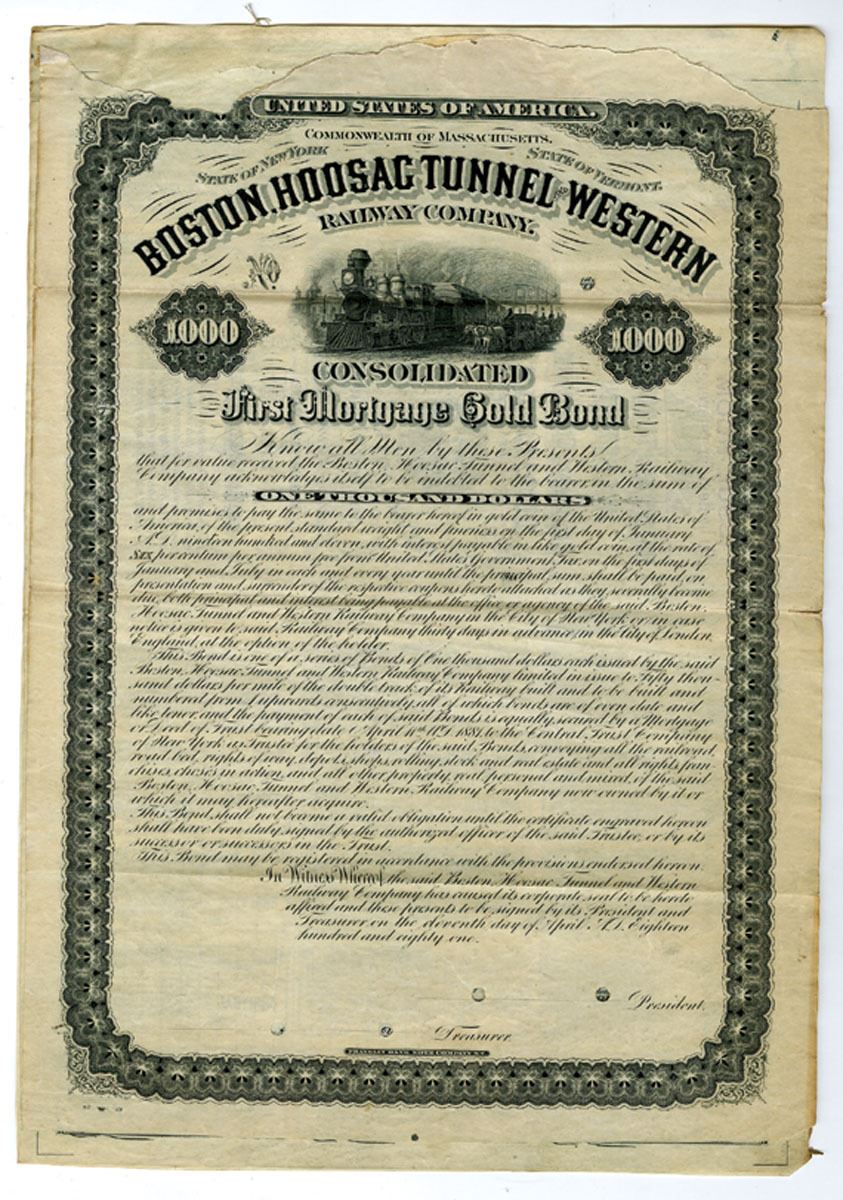 UNITED STATES OF AMERICA.
COMMONWEALTH OF MASSACHUSETTS.
STATE OF NEW YORK STATE OF VERMONT.
BOSTON, HOOSAC TUNNEL AND WESTERN
RAILWAY COMPANY.
No
1000 1000
CONSOLIDATED
First Mortgage Gold Bond
Know all Men by these Presents
that for value received the Boston, Hoosac Tunnel and Western Railway
Company acknowledges itself to be indebted to the bearer in the sum of
ONE THOUSAND DOLLARS
and promises to pay the same to the bearer hereof in gold coin of the United States of
America, of the present standard weight and fineness on the first day of January
A.D. nineteen hundred and eleven, with interest payable in like gold coin, at the rate of
Six per centum per annum free from United States Government Tax, on the first days of
January and July in each and every year until the principal sum shall be paid, on
presentation and surrender of the respective coupons hereto attached as they severally become
due, both principal and interest being payable at the office or agency of the said Boston,
Hoosac Tunnel and Western Railway Company in the City of New York or in case
notice is given to said Railway Company thirty days in advance, in the City of London,
England, at the option of the holder.
This Bond is one of a series of Bonds of One thousand dollars each issued by the said
Boston, Hoosac Tunnel and Western Railway Company limited in issue to Fifty thou-
sand dollars per mile of the double track of its Railway built and to be built and
numbered from 1 upwards consecutively, all of which bonds are of even date and
like tenor, and the payment of each of said Bonds is equally secured by a Mortgage
or Deed of Trust bearing date April 11th A.D. 1881, to the Central Trust Company
of New York as Trustee for the holders of the said Bonds, conveying all the railroad,
road bed, rights of way, depots, shops, rolling stock and real estate and all rights, fran-
chises, choses in action, and all other property, real, personal and mixed, of the said
Boston, Hoosac Tunnel and Western Railway Company now owned by it or
which it may hereafter acquire.
This Bond shall not become a valid obligation until the certificate engraved hereon
shall have been duly signed by the authorized officer of the said Trustee, or by its
successor or successors in the Trust.
This Bond may be registered in accordance with the provisions endorsed hereon.
In Witness Whereof the said Boston, Hoosac Tunnel and Western
Railway Company has caused its corporate seal to be hereto
affixed and these presents to be signed by its President and
Treasurer on the eleventh day of April A.D. Eighteen
hundred and eighty one.
President.
Treasurer.
FRANKLIN BANK NOTE COMPANY N.Y.